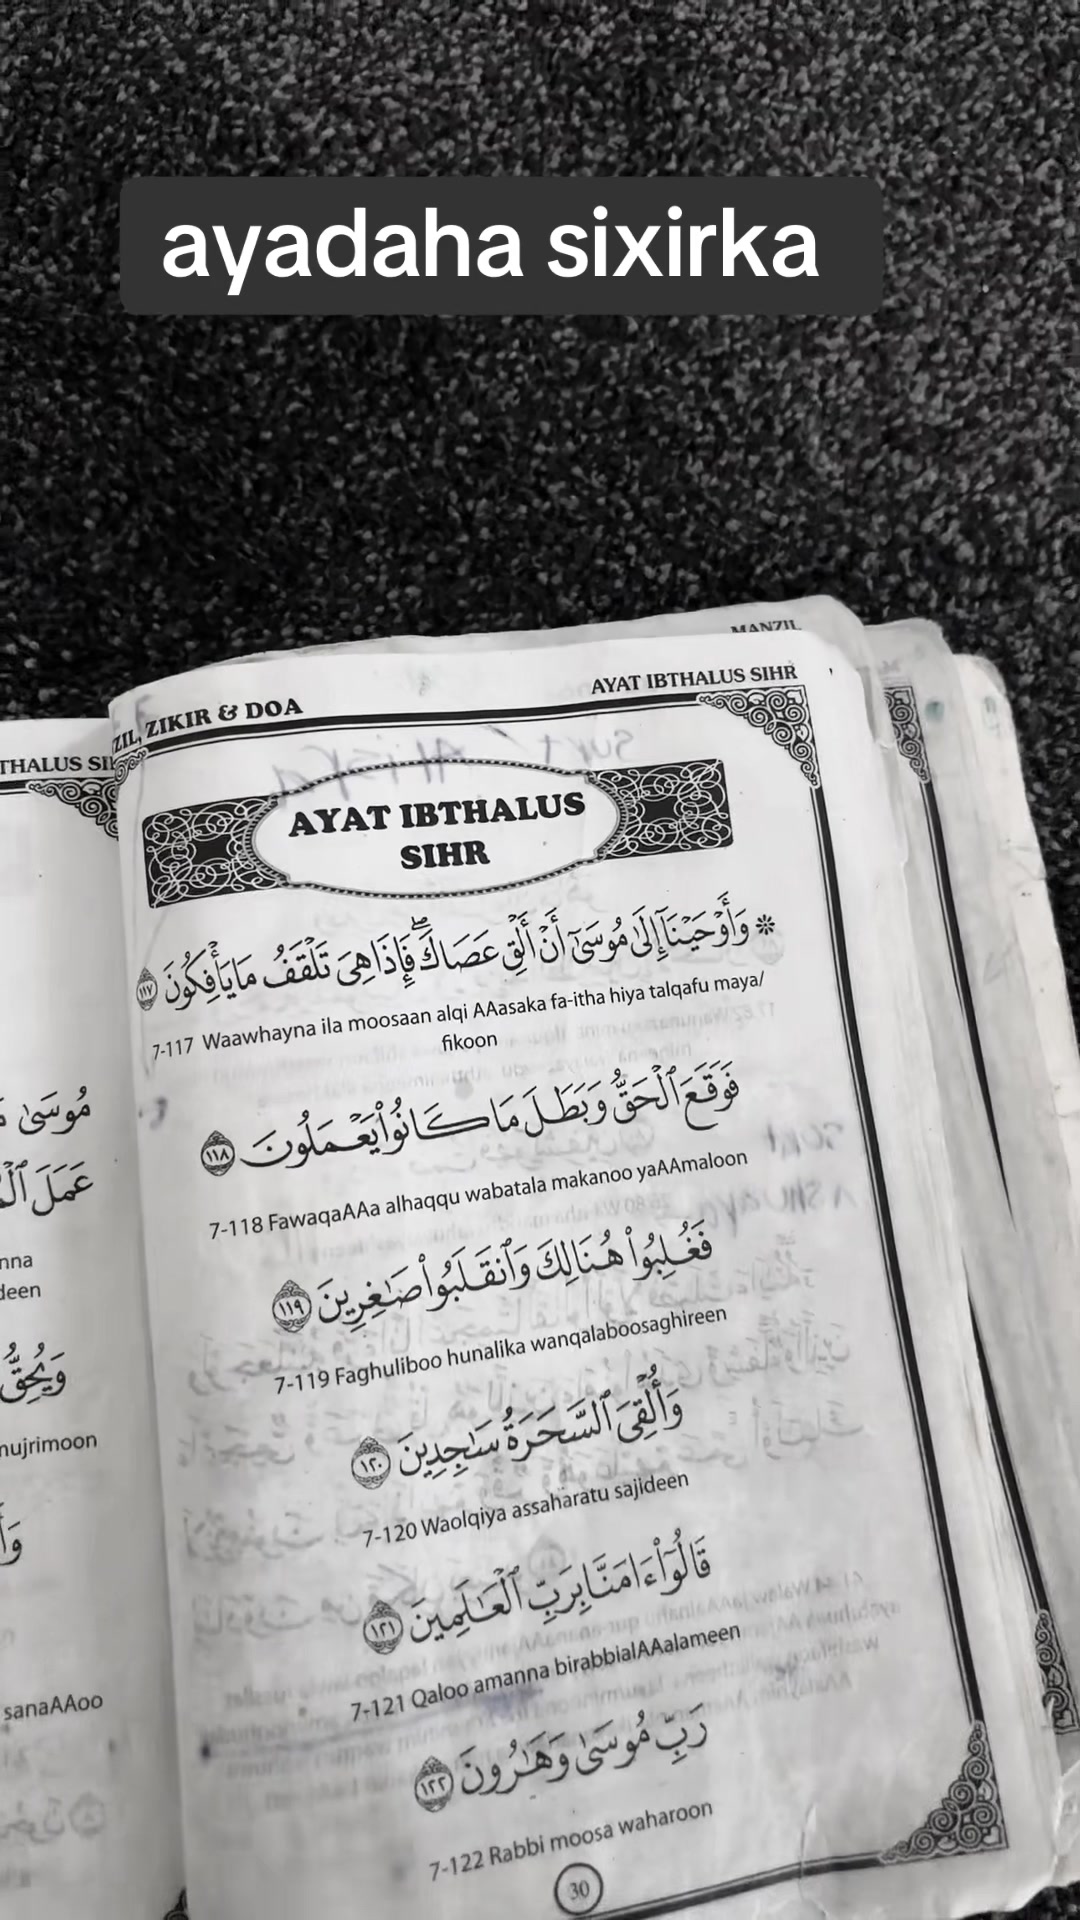 ayadaha sixirka
MANZIL
ZIL, ZIKIR & DOA
AYAT IBTHALUS SIHR
THALUS SI
AYAT IBTHALUS
SIHR
* وَأَوْحَيْنَآ إِلَىٰ مُوسَىٰٓ أَنْ أَلْقِ عَصَاكَ ۖ فَإِذَا هِىَ تَلْقَفُ مَا يَأْفِكُونَ ١١٧
7-117 Waawhayna ila moosaan alqi AAasaka fa-itha hiya talqafu maya/
fikoon
فَوَقَعَ ٱلْحَقُّ وَبَطَلَ مَا كَانُوا۟ يَعْمَلُونَ ١١٨
7-118 FawaqaAAa alhaqqu wabatala makanoo yaAAmaloon
فَغُلِبُوا۟ هُنَالِكَ وَٱنقَلَبُوا۟ صَٰغِرِينَ ١١٩
7-119 Faghuliboo hunalika wanqalaboosaghireen
وَأُلْقِىَ ٱلسَّحَرَةُ سَٰجِدِينَ ١٢٠
7-120 Waolqiya assaharatu sajideen
قَالُوٓا۟ ءَامَنَّا بِرَبِّ ٱلْعَٰلَمِينَ ١٢١
7-121 Qaloo amanna birabbialAAalameen
رَبِّ مُوسَىٰ وَهَٰرُونَ ١٢٢
7-122 Rabbi moosa waharoon
30
مُوسَىٰ
عَمَلَ
nna
deen
وَيُحِقُّ
mujrimoon
sanaAAoo